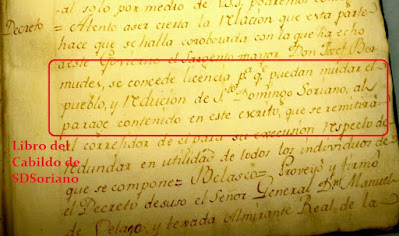 al solo por medio de
Decreto
Atento aser cierta la relacion que esta parte
hace que se halla coroborada con la que ha echo
aeste Govierno el Sargento mayor Don Josef Ber
mudes, se concede licencia pa. qe. puedan mudar el
pueblo, y reducion de Sto. Domingo Soriano, al
parage contenido en este escrito, que se remitirá
al corregidor de el para su execusion respecto de
redundar en utilidad de todos los individuos de
que se compone= Belasco= Proveyo y firmó
el Decreto desuso el Señor General Dn. Manuel
de Velazo, y texada Almirante Real de la
Libro del
Cabildo de
SDSoriano